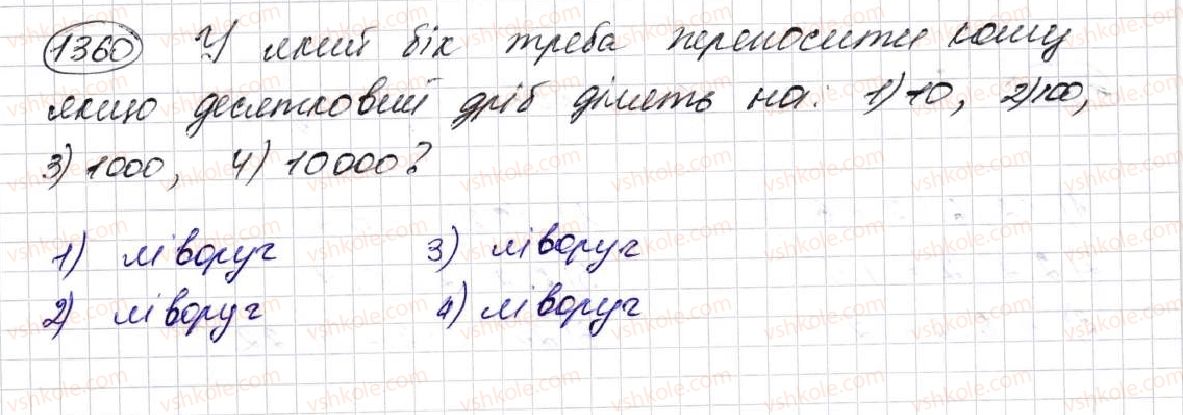 1360 У який бік треба переносити кому
якщо десятковий дріб ділять на: 1) 10, 2) 100,
3) 1000, 4) 10000?
1) ліворуч 3) ліворуч
2) ліворуч 4) ліворуч